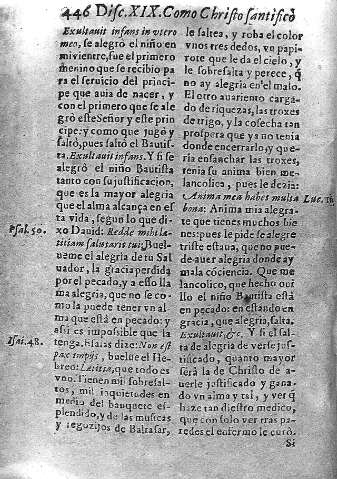 446 Disc. XIX. Como Christo santificò
Exultauit infans in vtero
meo, se alegrò el niño en
mi vientre, fue el primero
menino que se recibio pa
ra el seruicio del princi-
pe que auia de nacer, y
con el primero que se ale
grò este Señor y este prin
cipe: y como que jugò y
saltò, pues saltò el Bautis-
ta. Exultauit infans. Y si se
alegrò el niño Bautista
tanto con su justificacion,
que es la mayor alegria
que el alma alcança en es
ta vida, segun lo que di-
Psal. 50.
xo Dauid: Redde mihi læ-
titiam salutaris tui, Buel-
ueme el alegria de tu Sal
uador, la gracia perdida
por el pecado, y a esso lla
ma alegria, que no se co-
mo la puede tener vn al
ma que està en pecado: y
assi es impossible que la
Isai. 48.
tenga. Isaias dize: Non est
pax impijs, buelue el He-
breo: Lætitia, que todo es
vno. Tienen mil sobresal-
tos, mil inquietudes en
medio del banquete es-
plendido, y de las musicas
y regozijos de Baltasar,
le saltea, y roba el color
vnos tres dedos, vn papi-
rote que le da el cielo, y
le sobresalta y perece, q̃
no ay alegria en el malo.
El otro auariento carga-
do de riquezas, las troxes
de trigo, y la cosecha tan
prospera que ya no tenia
donde encerrarlo, y que-
ria ensanchar las troxes,
tenia su anima bien me-
lancolica, pues le dezia:
Anima mea habes multa
Luc.
bona: Anima mia alegra-
te que tienes muchos bie
nes: pues le pide se alegre
triste estaua, que no pue-
de auer alegria donde ay
mala cõciencia. Que me
lancolico, que hecho oui
llo el niño Bautista està
en pecado: en estando en
gracia, que alegria, salta.
Exultauit, &c. Y si el sal-
ta de alegria de verse jus-
tificado, quanto mayor
serà la de Christo de a-
uerle justificado y gana-
do vn alma y tal, y ver q̃
haze tan diestro medico,
que con solo ver tras pa-
redes el enfermo le curò.
Si